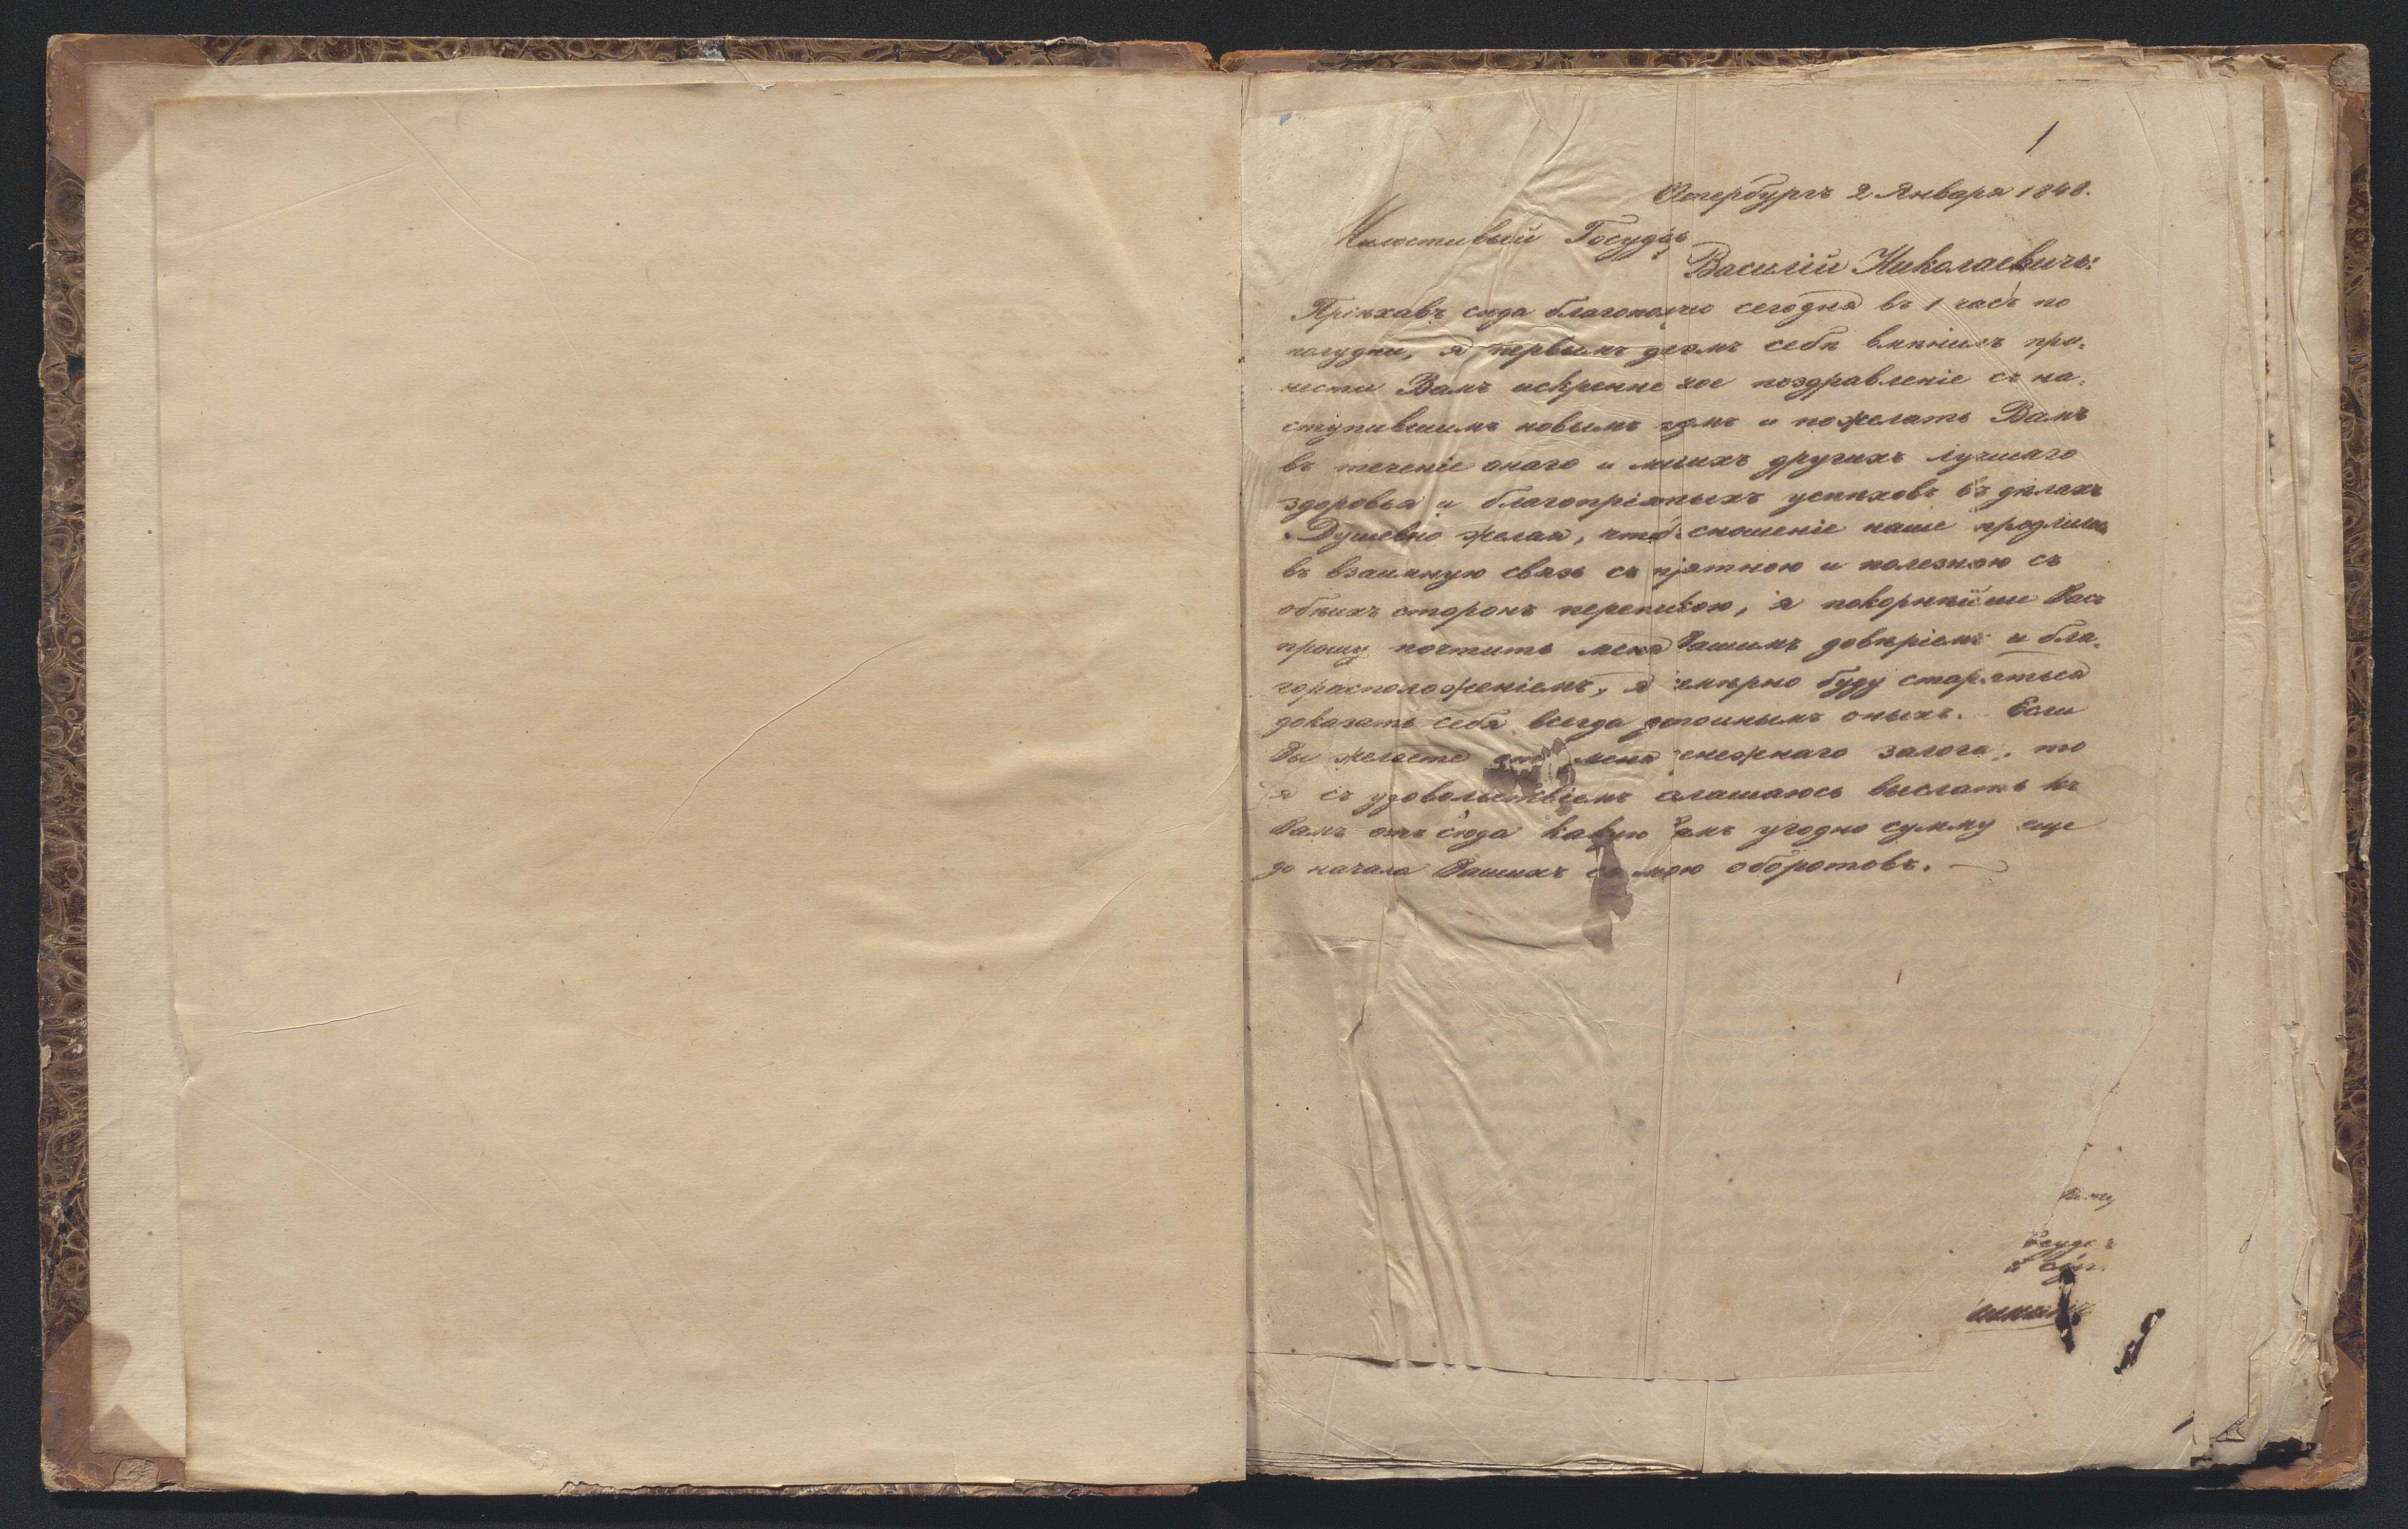 1
Петербургъ 2 Января 1848.
Милостивый Государь
Василій Николаевичь:
Пріѣхавъ сюда благополучно сегодня въ 1 часъ по
полудни, я первымъ дѣломъ себѣ вмѣнилъ при-
нести Вамъ искреннее мое поздравленіе съ на-
ступившимъ новымъ годомъ и пожелать Вамъ
въ теченіе онаго и многихъ другихъ лучшаго
здоровья и благопріятныхъ успѣховъ въ дѣлахъ
Душевно желая, чтобъ сношеніе наше продлилось
въ взаимную связь съ пріятною и полезною съ
обѣихъ сторонъ перепискою, я покорнѣйше Васъ
прошу почтить меня Вашимъ довѣріемъ и бла-
горасположеніемъ, я всемѣрно буду стараться
доказать себя всегда достойнымъ оныхъ. Если
Вы желаете отъ меня денежнаго залога, то
я съ удовольствіемъ соглашаюсь выслать къ
Вамъ отъ сюда какую Вамъ угодно сумму еще
до начала Вашихъ со мою оборотовъ.